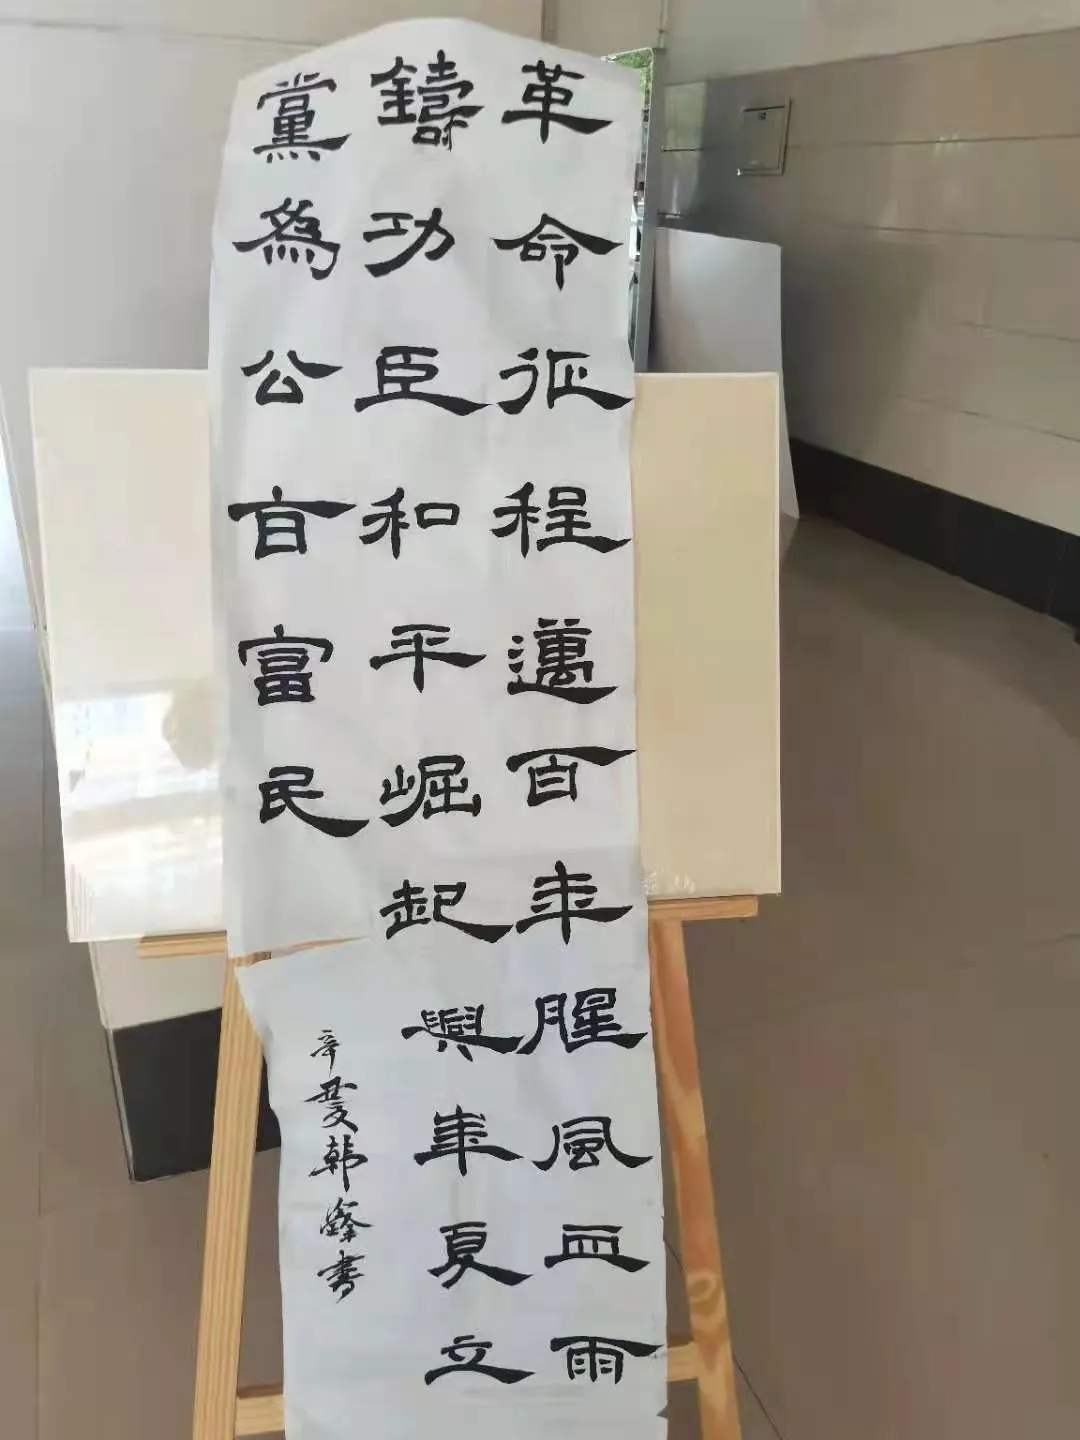 革命征程邁百年腥風血雨
鑄功臣和平崛起興華夏立
黨為公旨富民
辛丑夏韩鋒書